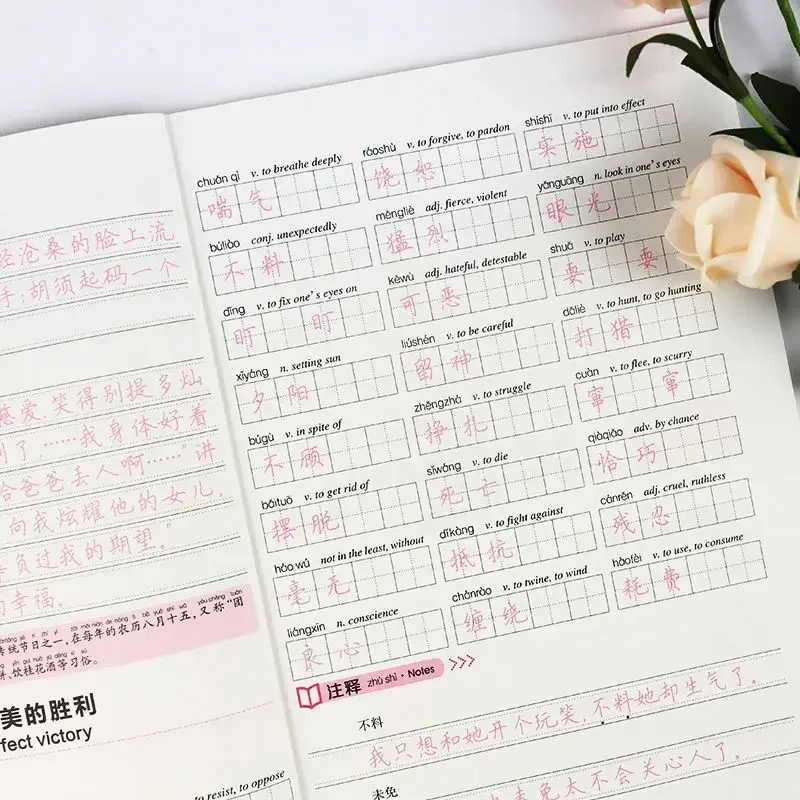 经沧桑的脸上流
手：胡须起码一个
慈爱，笑得别提多灿
到了，……我身体好着
给爸爸丢人啊……”讲
向我炫耀他的女儿，
负过我的期望。”
幸福。
统节日之一，在每年的农历八月十五，又称“团
饼、饮桂花酒等习俗。
美的胜利
fect victory
to resist, to oppose
chuǎn qì v. to breathe deeply
喘气
ráoshù v. to forgive, to pardon
饶恕
shíshī v. to put into effect
实施
búliào conj. unexpectedly
不料
měngliè adj. fierce, violent
猛烈
yǎnguāng n. look in one's eyes
眼光
dīng v. to fix one's eyes on
盯 盯
kěwù adj. hateful, detestable
可恶
shuǎ v. to play
耍 耍
xīyáng n. setting sun
夕阳
liúshén v. to be careful
留神
dǎliè v. to hunt, to go hunting
打猎
búgù v. in spite of
不顾
zhēngzhá v. to struggle
挣扎
cuàn v. to flee, to scurry
窜 窜
bǎituō v. to get rid of
摆脱
sǐwáng v. to die
死亡
qiàqiǎo adv. by chance
恰巧
háo wú not in the least, without
毫无
dǐkàng v. to fight against
抵抗
cánrěn adj. cruel, ruthless
残忍
liángxīn n. conscience
良心
chánrào v. to twine, to wind
缠绕
hàofèi v. to use, to consume
耗费
注释 zhù shì · Notes
不料
我只想和她开个玩笑，不料她却生气了。
未免
未免太不会关心人了。